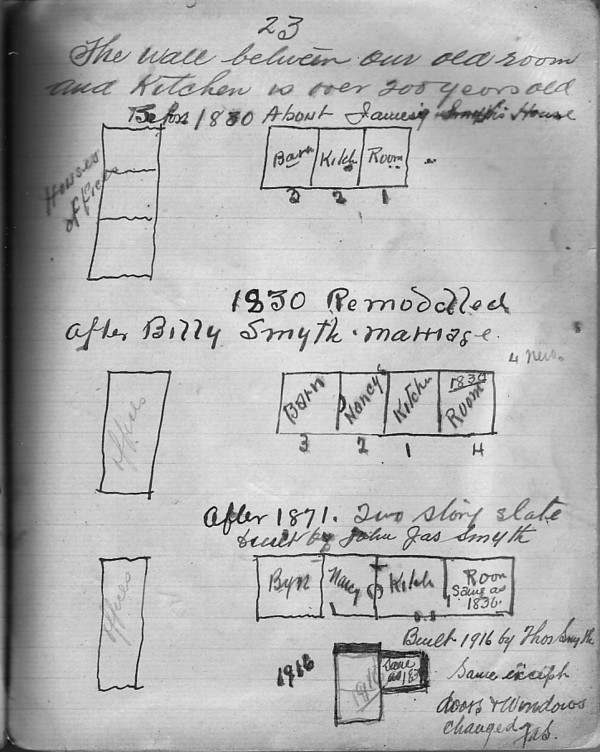 23
The wall between our old room
and Kitchen is over 200 years old
Before 1830 About James Smyth's House
Houses
offices
Barn Kitch Room
3 2 1
1830 Remodelled
after Billy Smyth. marriage.
4 new.
offices
Barn Nancy Kitchen 1830 Room
3 2 1 4
After 1871. Two story slate
built by John Jas Smyth
offices
Byr Nancy Kitch Room
Same as
1836.
Built 1916 by Thos Smyth
1916
1916
Same
as 187
Same except
doors & Windows
changed
Jas.